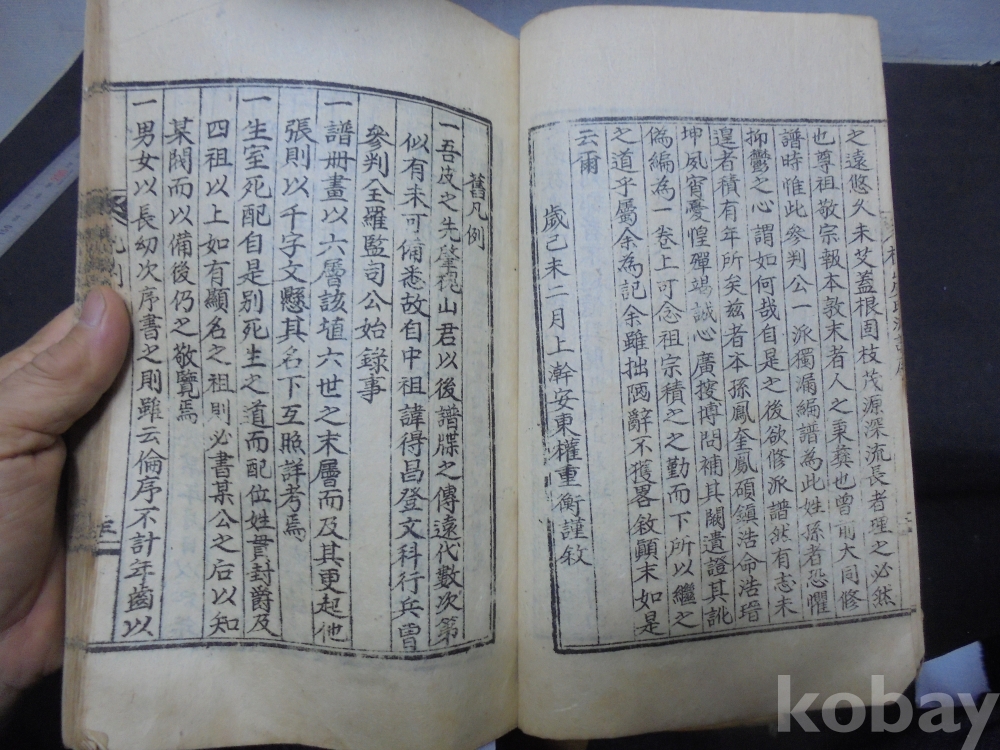 之遠悠久未艾蓋根固枝茂源深流長者理之必然
也尊祖敬宗報本敦末者人之秉彛也曾前大同修
譜時惟此參判公一派獨漏編譜為此姓孫者恐懼
抑鬱之心謂如何哉自是之後欲修派譜然有志未
遑者積有年所矣玆者本孫鳳奎鳳碩鎮浩命浩瑨
坤夙宵憂惶殫竭誠心廣搜博問補其闕遺證其訛
偽編為一卷上可念祖宗積之之勤而下所以繼之
之道乎屬余為記余雖拙陋辭不獲畧敘顚末如是
云爾
歲己未二月上澣安東權重衡謹敘
舊凡例
一吾皮之先肇槐山君以後譜牒之傳遠代數次第
似有未可備悉故自中祖諱得昌登文科行兵曹
參判全羅監司公始錄事
一譜冊畫以六層該埴六世之末層而及其更起他
張則以千字文懸其名下互照詳考焉
一生室死配自是别死生之道而配位姓貫封爵及
四祖以上如有顯名之祖則必書某公之后以知
某闕而以備後仍之敬覽焉
一男女以長幼次序書之則雖云倫序不計年齒以
凡例
三
kobay